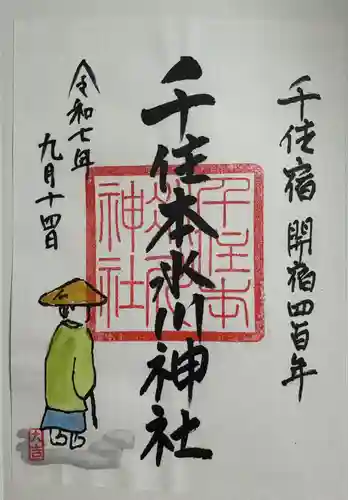 千住宿 開宿四百年
千住本氷川神社
令和七年
九月十四日
千住本
氷川
神社
大吉